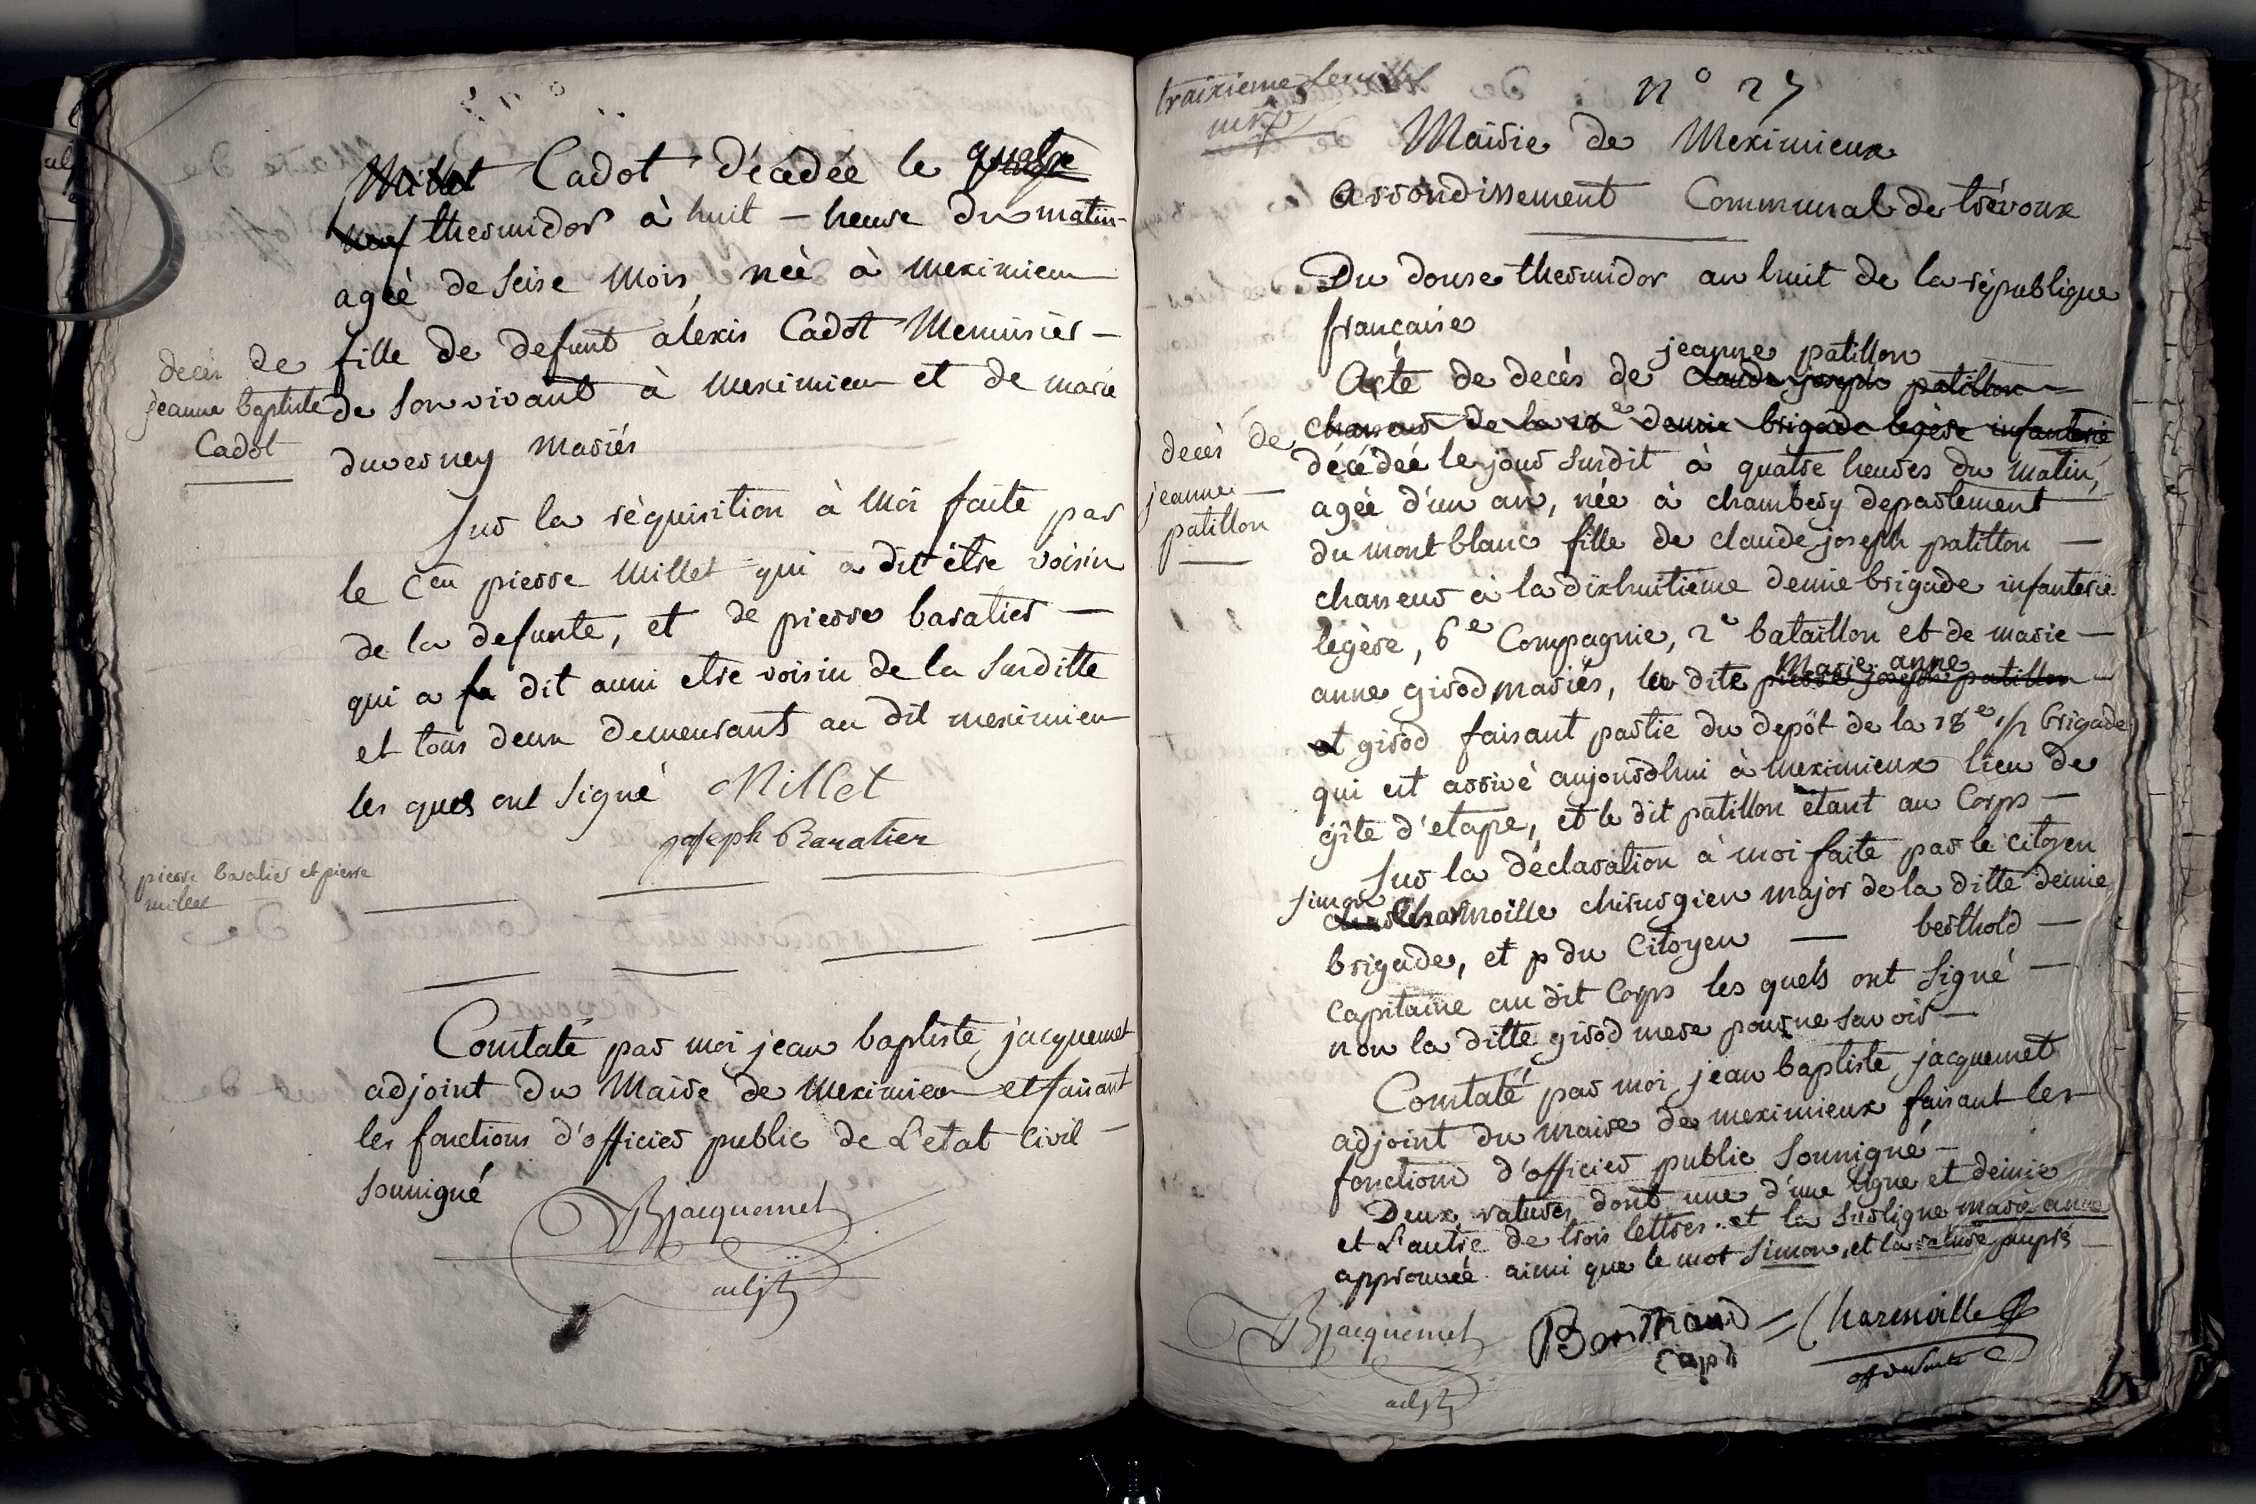 Millet Cadot décédée le quatre
neuf thermidor à huit – heure du matin
ageé de seise mois, née à meximieu
fille de defunt alexis Cadot Menuisier –
de son vivant à meximieu et de marie
duverney mariés
decès de
jeanne baptiste
Cadot
Sur la réquisition à moi faite par
le Cen pierre Millet qui a dit être voisin
de la defunte, et de pierre baratier –
qui a dit aussi etre voisin de la surditte
et tous deux demeurants au dit meximieu
les quels ont signé Millet
joseph Baratier
pierre baratier et pierre
millet
Constaté par moi jean baptiste jacquemet
adjoint du Maire de meximieu et faisant
les fonctions d'officier public de L'etat Civil –
soussigné
Bjacquemet
adjt
traixieme feuillet
n° 27
Mairie de Meximieux
arrondissement Communal de trévoux
Du douse thermidor an huit de la république
française
jeanne patillon
Acte de decès de Claude joseph patillon –
chasseur de la 18e demie brigade legère infanterie
décédeé le jour surdit à quatre heures du matin,
agée d'un an, née à chambery departement
du mont blanc fille de claude joseph patillon –
chasseur à la dixhuitième demie brigade infanterie
légère, 6e Compagnie, 2e bataillon et de marie –
anne girod mariés, la dite pierre joseph patillon –
marie anne
et girod faisant partie du depôt de la 18e 1/2 brigade
qui est arrivé aujourdhui à meximieux lieu de
gîte d'etape, et le dit patillon étant au Corps –
decès de
jeanne –
patillon
Sur la déclaration à moi faite par le citoyen
simon
Charmoille chirurgien major de la ditte demie
brigade, et p du Citoyen — berthold –
capitaine au dit Corps les quels ont signé –
non la ditte girod mere pour ne savoir –
Constaté par moi jean baptiste jacquemet
adjoint du maire de meximieux faisant les
fonctions d'officier public soussigné –
Deux ratures dont une d'une ligne et demie
et L'autre de trois lettres et la surligne marie anne
approuvée ainsi que le mot simon, et la rature
Bjacquemet
adjt
capt
Charmoille